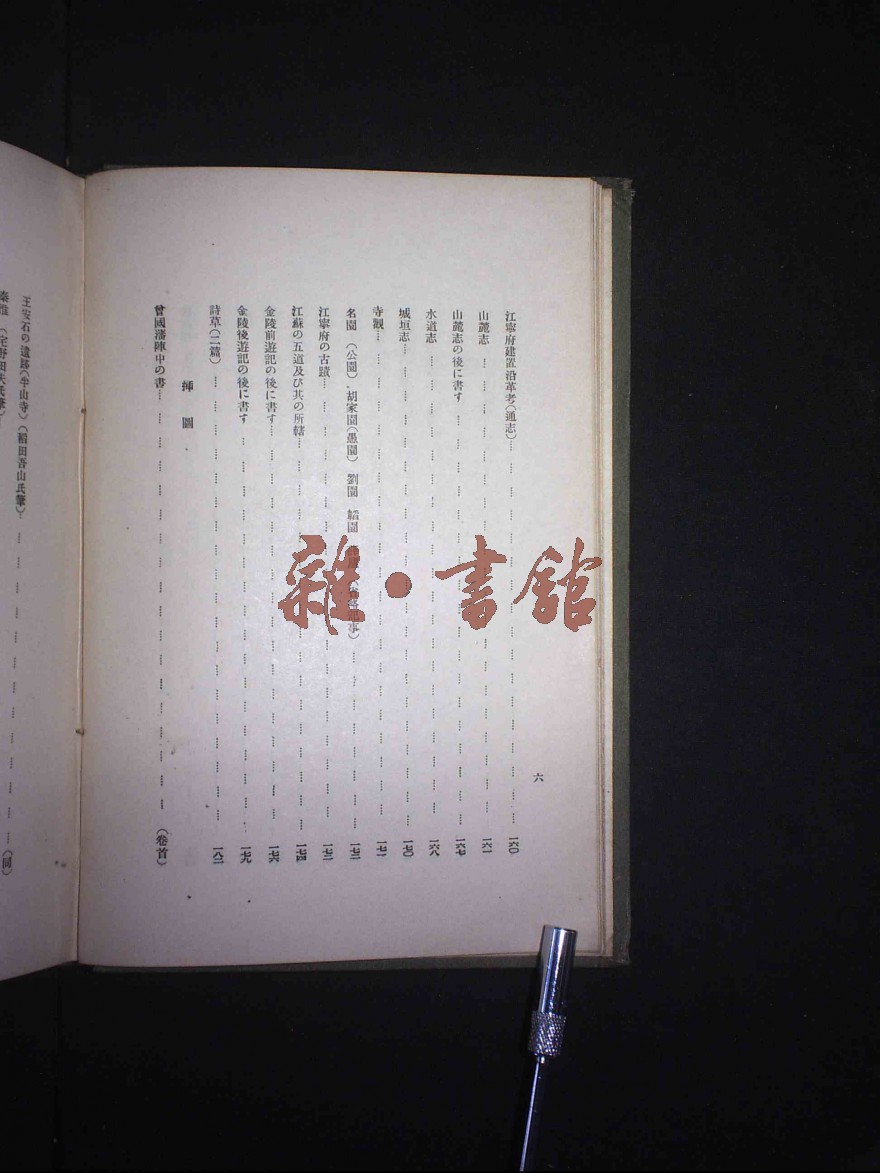 六
江寧府建置沿革考(通志)……一六〇
山麓志……一六一
山麓志の後に書す……一六七
水道志……一六八
城垣志……一七〇
寺觀……一七一
名園 (公園)、胡家園(愚園) 劉園 韜園
江寧府の古蹟……一七三
江蘇の五道及び其の所轄……一七四
金陵前遊記の後に書す……一七六
金陵後遊記の後に書す……一七九
詩草(二篇)……一八二
挿圖
曾國藩陣中の書……(卷首)
王安石の遺跡(半山寺)(稲田吾山氏筆)……(同)
雜·書館